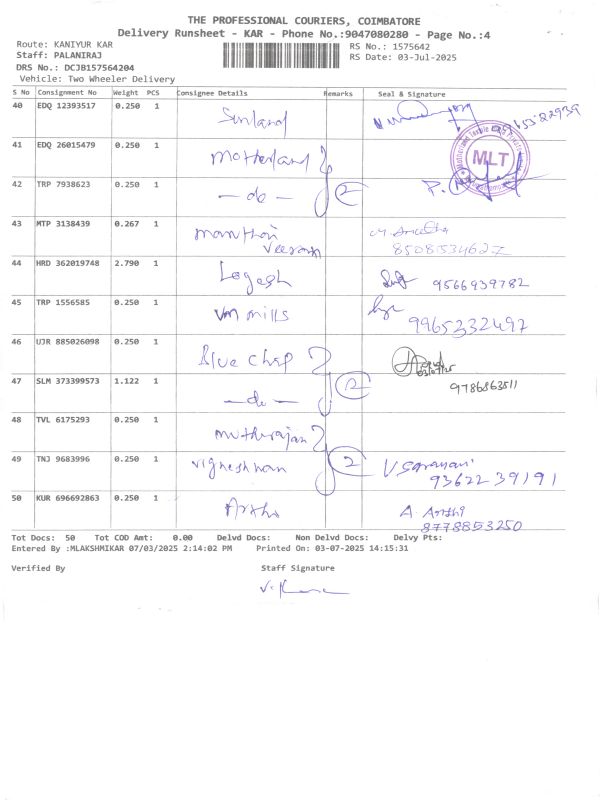 THE PROFESSIONAL COURIERS, COIMBATORE
Delivery Runsheet - KAR - Phone No.:9047080280 - Page No.:4
Route: KANIYUR KAR
RS No.: 1575642
Staff: PALANIRAJ
RS Date: 03-Jul-2025
DRS No.: DCJB157564204
Vehicle: Two Wheeler Delivery
S No Consignment No Weight PCS Consignee Details Remarks Seal & Signature
40 EDQ 12393517 0.250 1 Sunland
41 EDQ 26015479 0.250 1 Motherland
MLT
42 TRP 7938623 0.250 1 -do- 2
43 MTP 3138439 0.267 1 manthai
Veeran 8508534627
44 HRD 362019748 2.790 1 Logesh 9566939782
45 TRP 1556585 0.250 1 Vm mills
9965332497
46 UJR 885026098 0.250 1 Blue Chip
47 SLM 373399573 1.122 1 -do- 2 9786863511
48 TVL 6175293 0.250 1 muthurajan
49 TNJ 9683996 0.250 1 Vigneshwan 2 V Saranani
9362239191
50 KUR 696692863 0.250 1 A Arthi
8778853250
Tot Docs: 50 Tot COD Amt: 0.00 Delvd Docs: Non Delvd Docs: Delvy Pts:
Entered By :MLAKSHMIKAR 07/03/2025 2:14:02 PM Printed On: 03-07-2025 14:15:31
Verified By Staff Signature